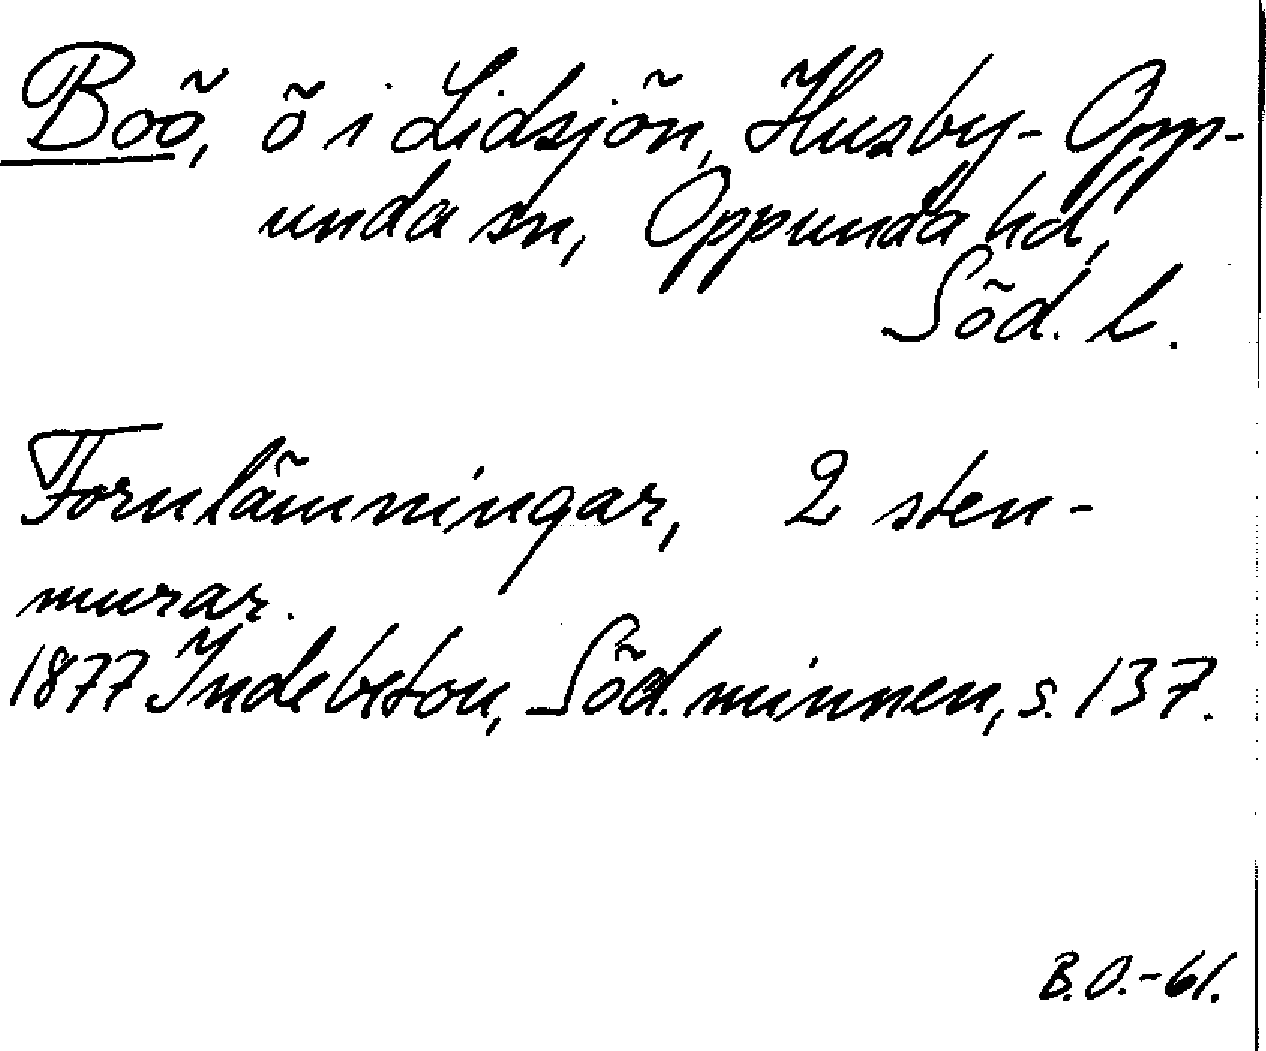 Boö, ö i Lidsjön, Husby-Opp-
unda sn, Oppunda hd,
Söd. l.
Fornlämningar, 2 sten-
murar.
1877 Indebetou, Söd. minnen, s. 137.
B.O.-61.